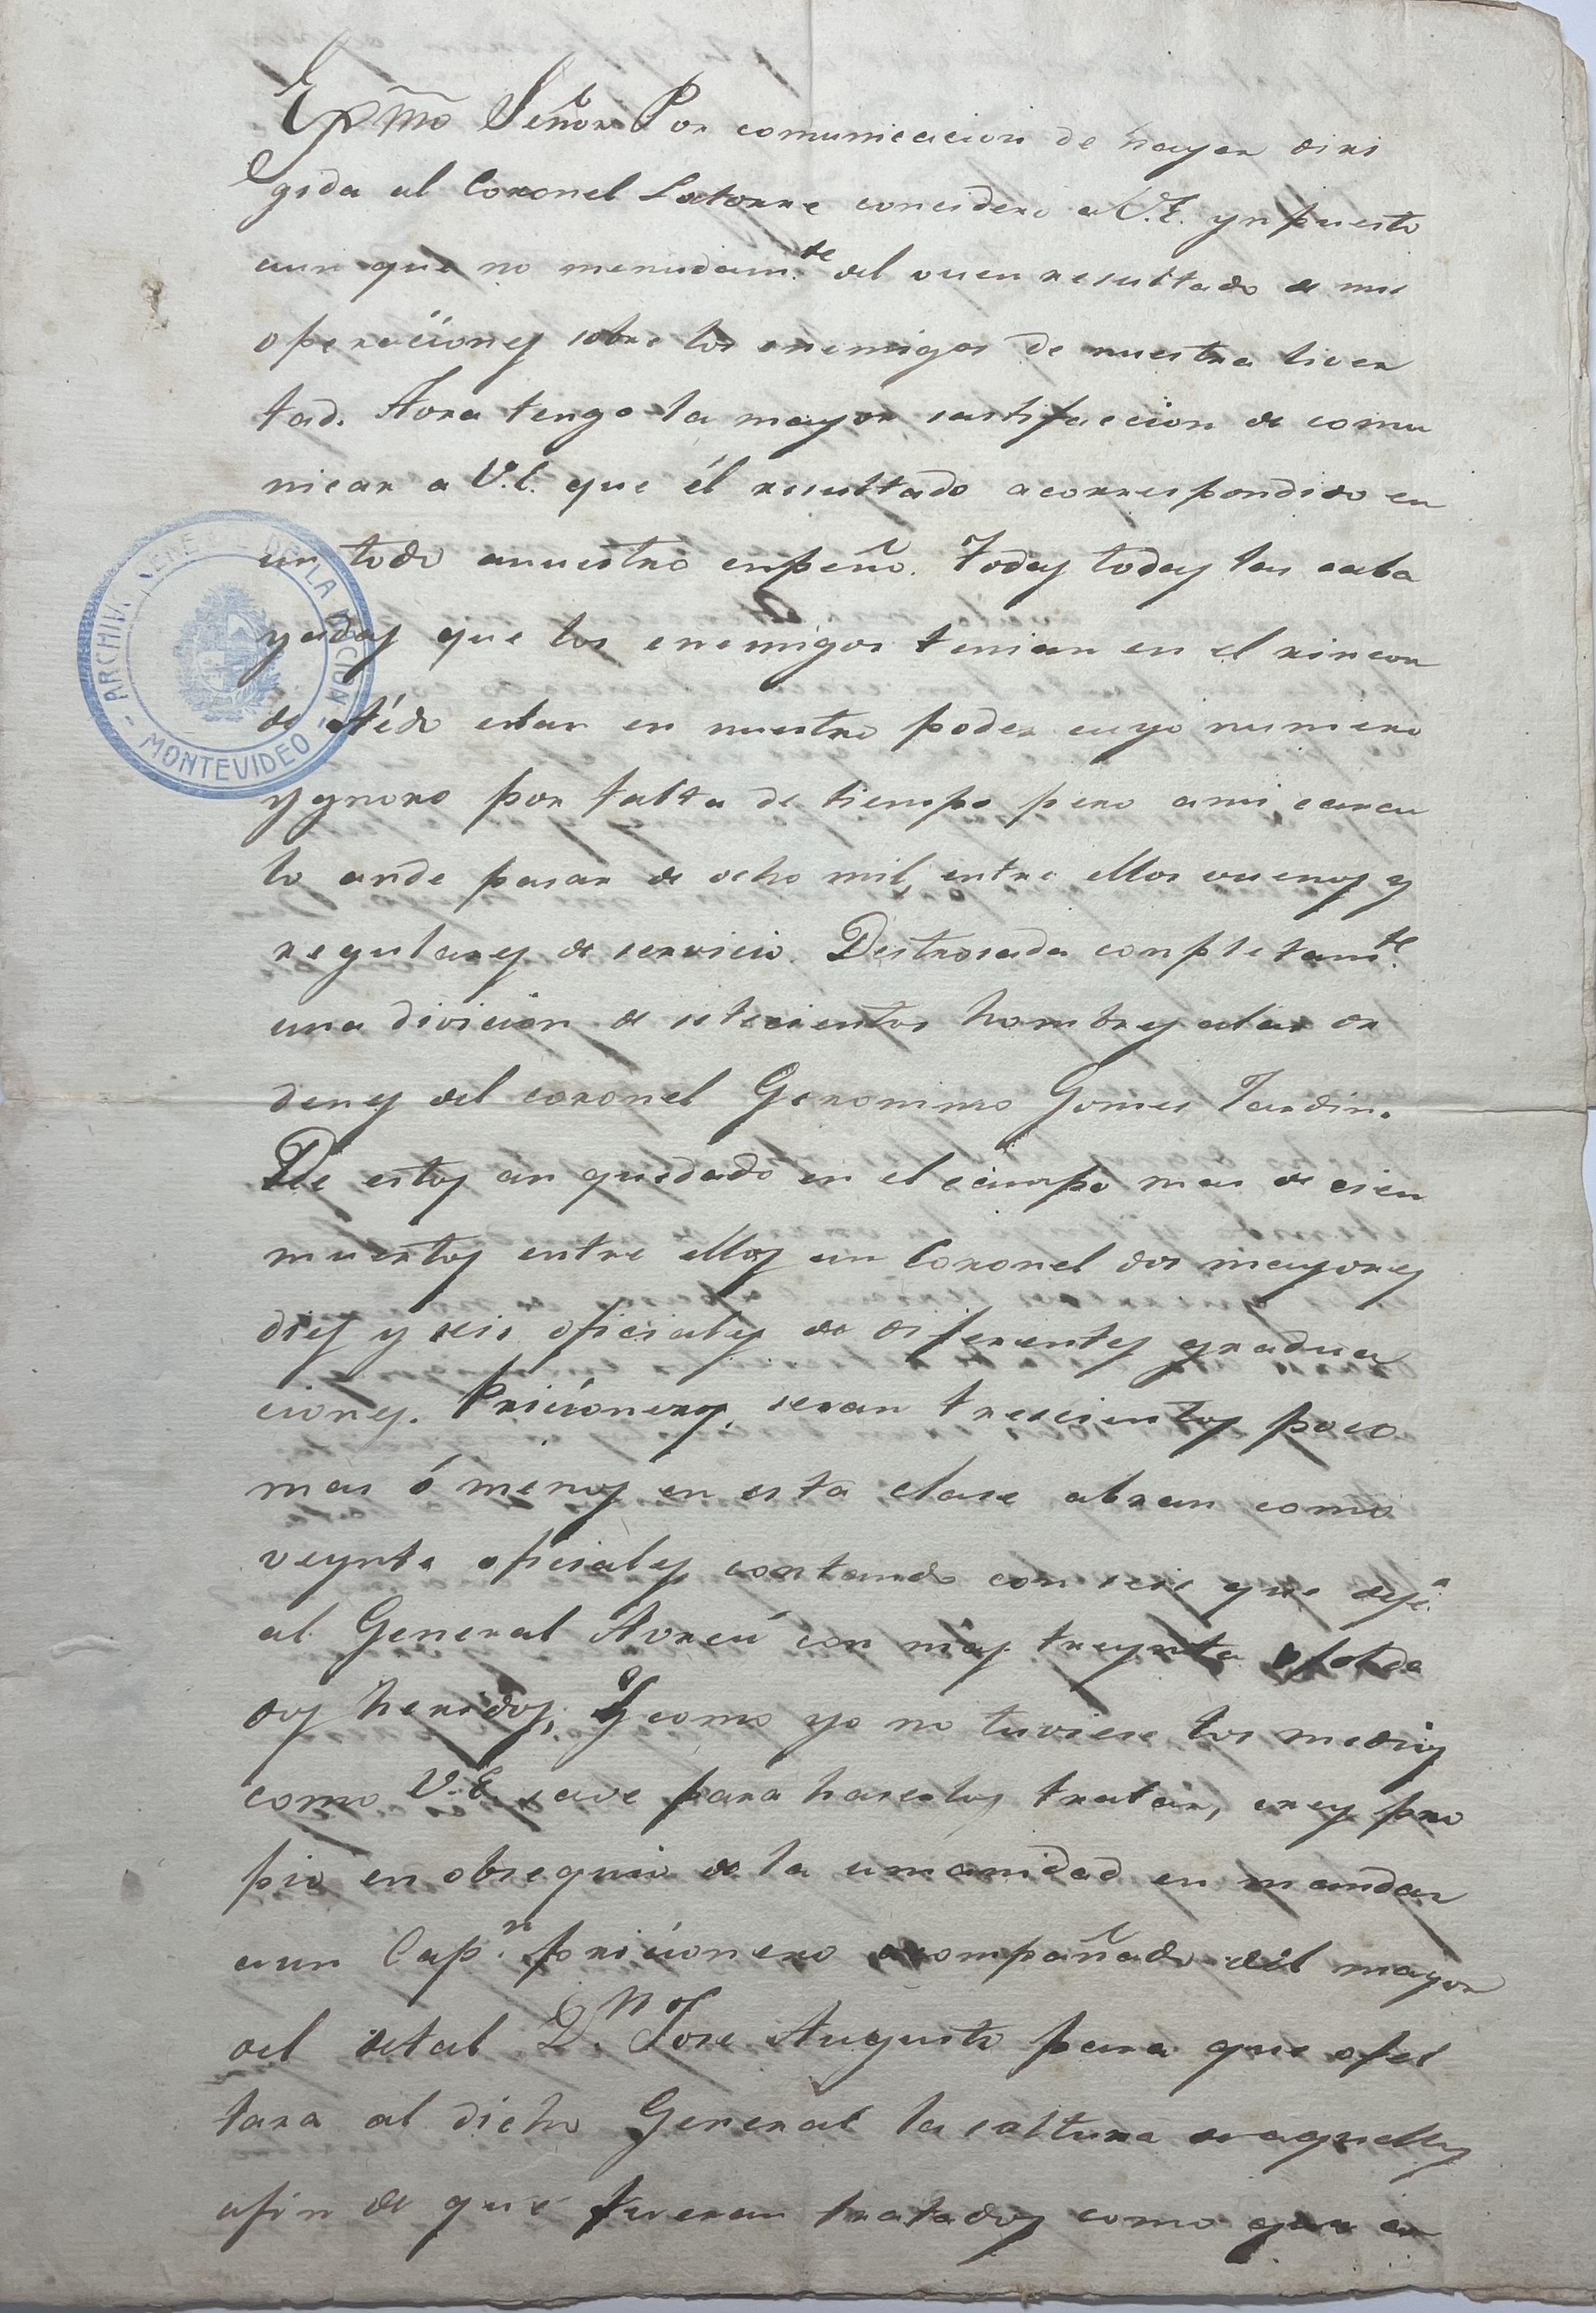 Exmõ Señor Por comunicacion de hayer diri
gida al Coronel Latorre concidero a V.E. ynpuesto
aun que no menudam.te del vuen resultado de mis
operaciones sobre los enemigos de nuestra liver
tad. Aora tengo la mayor sastisfaccion de comu
nicar a V.E. que él resultado acorrespondido en
un todo anuestro enpeño. Todas todas las caba
yadas que los enemigos tenian en el rincon
de Aédo estan en nuestro poder cuyo numero
ygnoro por falta de tiempo pero ami carcu
lo ande pasar de ocho mil, entre ellos vuenos y
regulares de servicio. Destrosada conpletam.te
una divicion de setecientos hombres alas or
denes del coronel Geronimo Gomes Jardin.
De estos an quedado en el campo mas de cien
muertos entre ellos un Coronel dos mayores
dies y seis oficiales de diferentes gradua
ciones. Pricioneros, seran trescientos poco
mas ó menos en esta clase abran como
veynte oficiales contando con seis que dejé
al General Avreú con mas treynta soldá
dos heridos, Y como yo no tuviese los medios
como V.E. save para haserlos tratar, crey pro
pio en obsequio de la umanidad en mandar
aun Cap.n pricionero acompañado del mayor
del detal D.n Jose Augusto para que
tara al dicho General la soltura de aquellos
afin de que fueran tratados como
ARCHIVO GENERAL DE LA NACION - MONTEVIDEO -